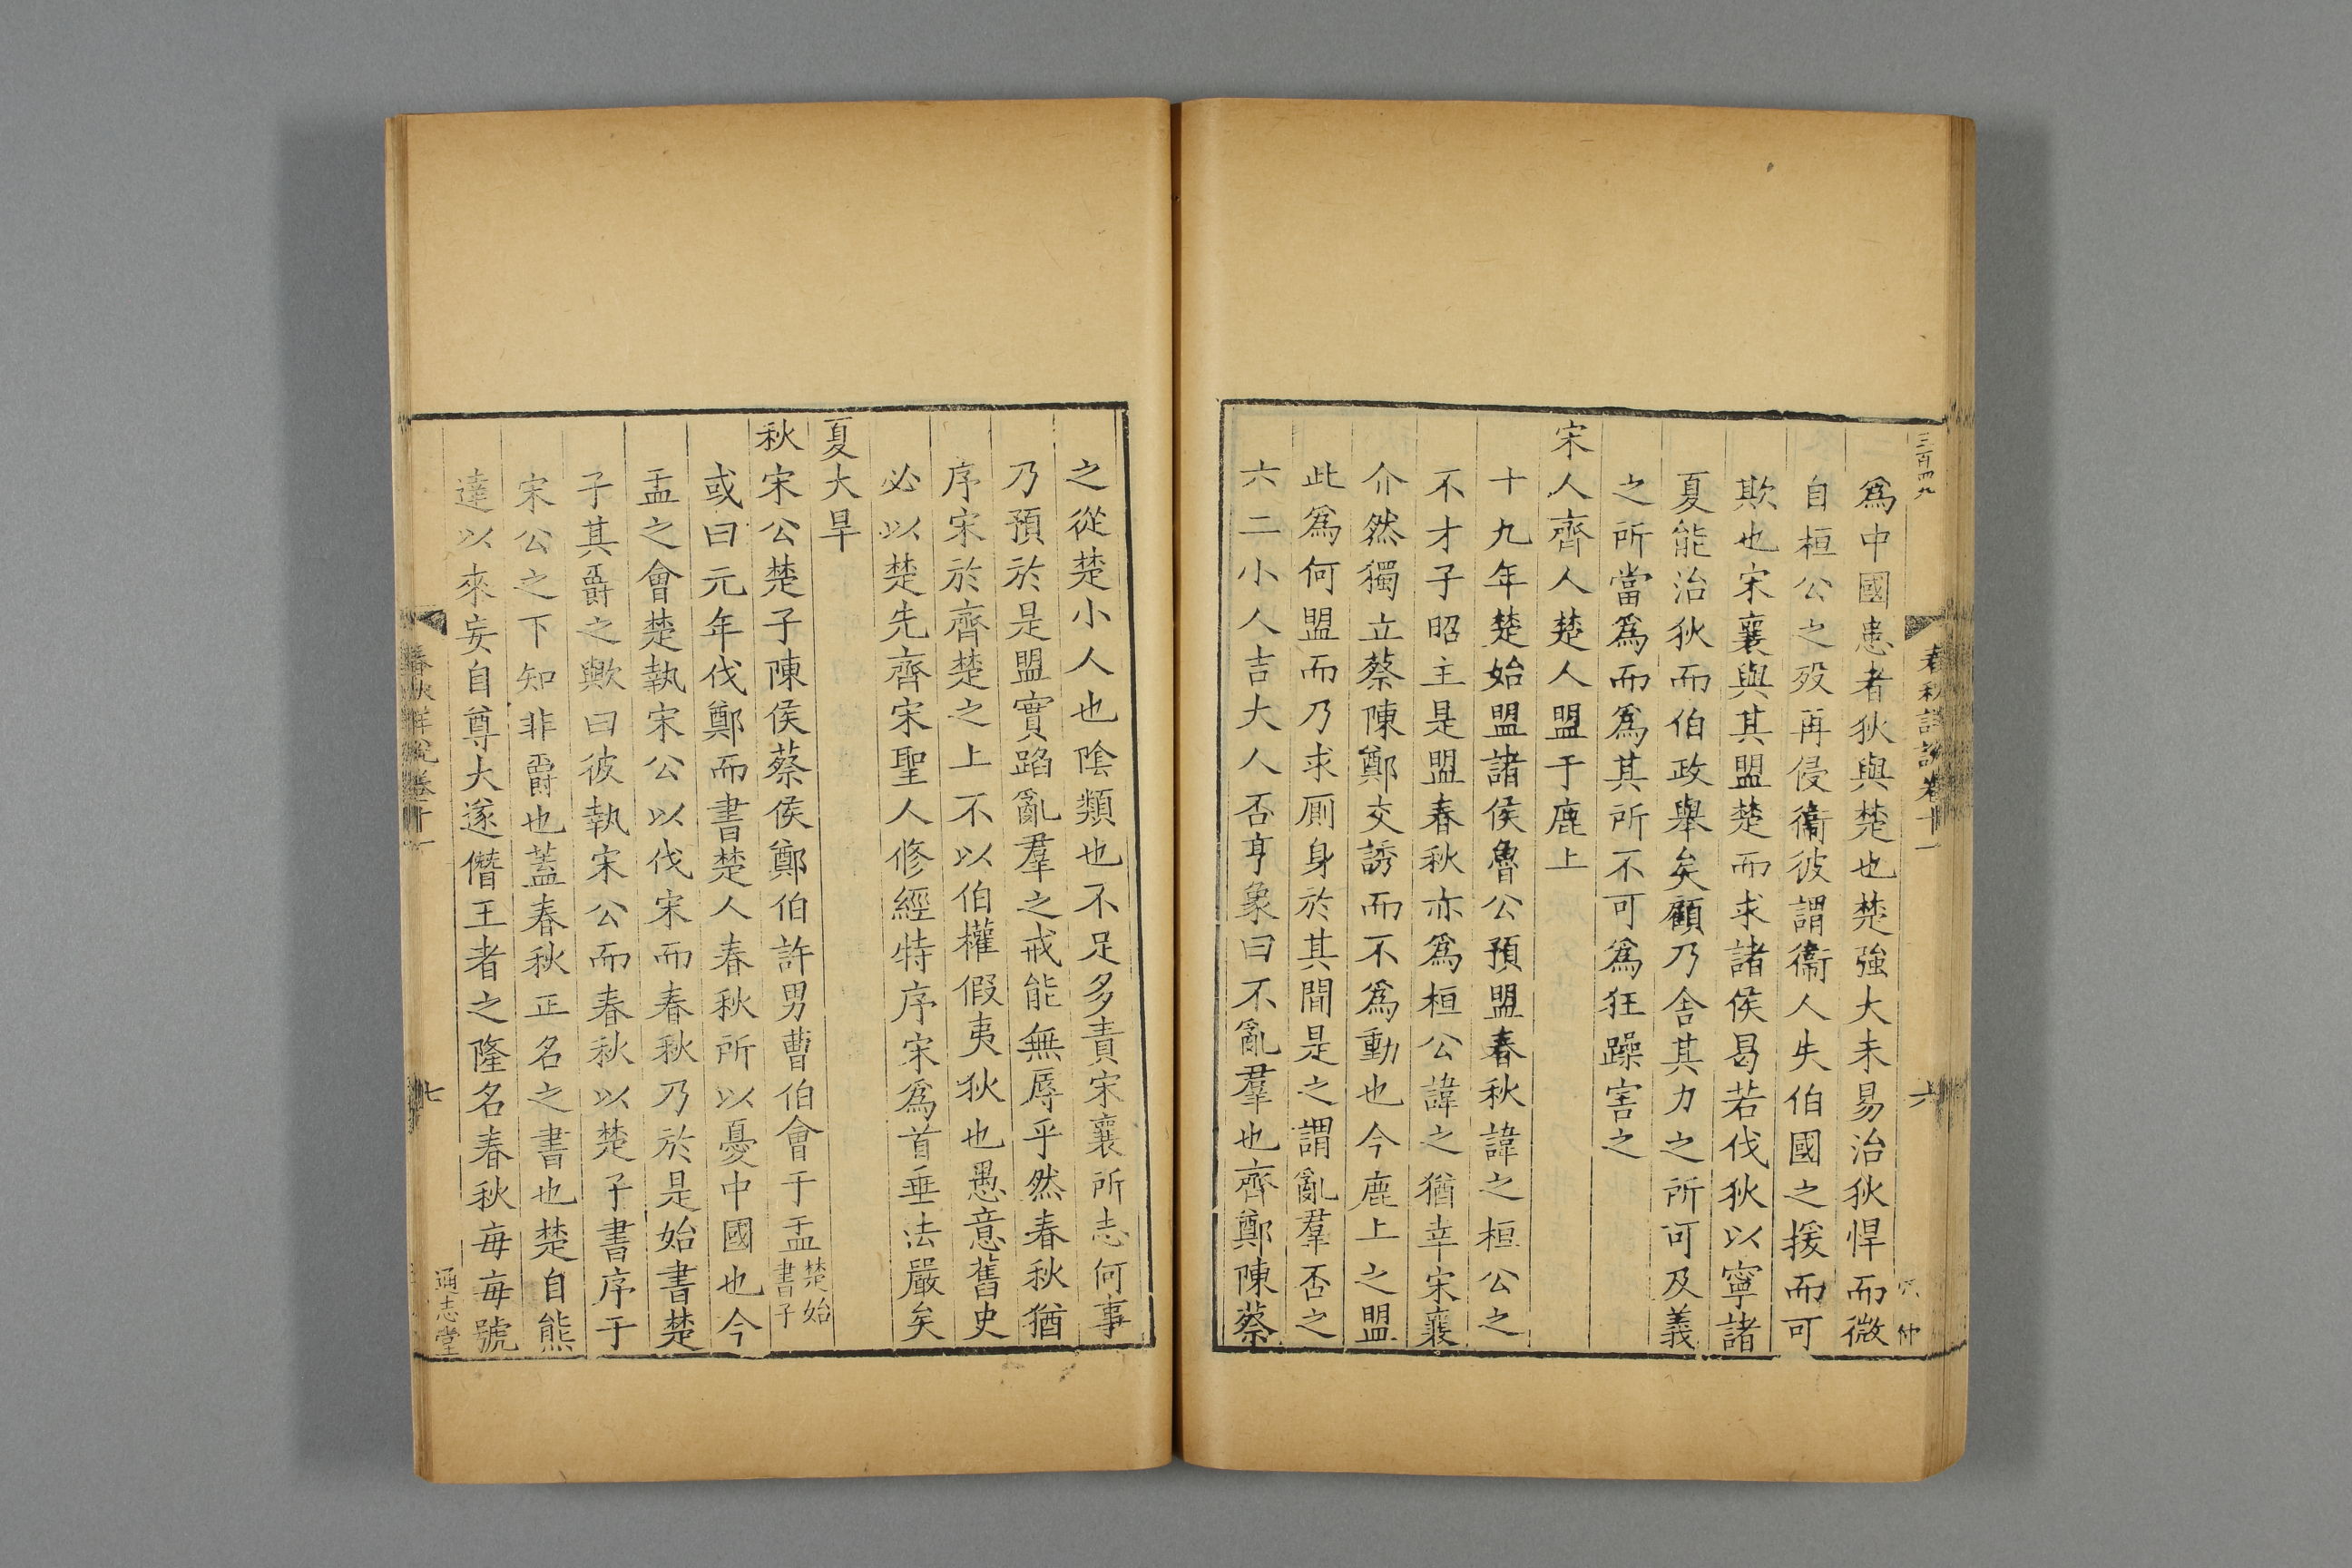 三百四九
春秋詳說卷十一
六
為中國患者狄與楚也楚強大未易治狄悍而微
自桓公之歿再侵衞彼謂衞人失伯國之援而可
欺也宋襄與其盟楚而求諸侯曷若伐狄以寧諸
夏能治狄而伯政舉矣顧乃舍其力之所可及義
之所當爲而爲其所不可爲狂躁害之
宋人齊人楚人盟于鹿上
十九年楚始盟諸侯魯公預盟春秋諱之桓公之
不才子昭主是盟春秋亦爲桓公諱之猶幸宋襄
介然獨立蔡陳鄭交誘而不爲動也今鹿上之盟
此爲何盟而乃求厠身於其間是之謂亂羣否之
六二小人吉大人否亨象曰不亂羣也齊鄭陳蔡
之從楚小人也陰類也不足多責宋襄所志何事
乃預於是盟實蹈亂羣之戒能無辱乎然春秋猶
序宋於齊楚之上不以伯權假夷狄也愚意舊史
必以楚先齊宋聖人修經特序宋爲首垂法嚴矣
夏大旱
秋宋公楚子陳侯蔡侯鄭伯許男曹伯會于盂楚始書子
或曰元年伐鄭而書楚人春秋所以憂中國也今
盂之會楚執宋公以伐宋而春秋乃於是始書楚
子其爵之歟曰彼執宋公而春秋以楚子書序于
宋公之下知非爵也蓋春秋正名之書也楚自熊
達以來妄自尊大遂僭王者之隆名春秋每每號
春秋詳說卷十一
七
通志堂